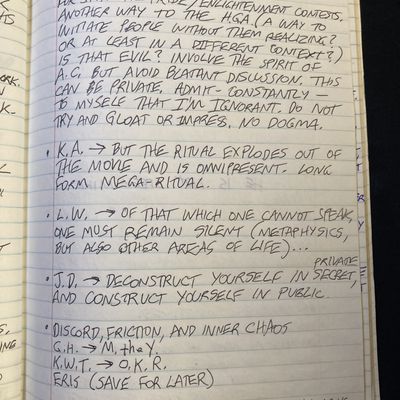 PRIDE/ENLIGHTENMENT CONTESTS.
ANOTHER WAY TO THE HGA. (A WAY TO
INITIATE PEOPLE WITHOUT THEM REALIZING?
OR AT LEAST IN A DIFFERENT CONTEXT?)
IS THAT EVIL? INVOLVE THE SPIRIT OF
A.C. BUT AVOID BLATANT DISCUSSION. THIS
CAN BE PRIVATE. ADMIT - CONSTANTLY -
TO MYSELF THAT I'M IGNORANT. DO NOT
TRY AND GLOAT OR IMPRESS. NO DOGMA.
• K.A. → BUT THE RITUAL EXPLODES OUT OF
THE MOVIE AND IS OMNIPRESENT. LONG
FORM MEGA-RITUAL.
• L.W. → OF THAT WHICH ONE CANNOT SPEAK,
ONE MUST REMAIN SILENT (METAPHYSICS,
BUT ALSO OTHER AREAS OF LIFE)...
PRIVATE
• J.D. → DECONSTRUCT YOURSELF IN SECRET,
AND CONSTRUCT YOURSELF IN PUBLIC.
• DISCORD, FRICTION, AND INNER CHAOS
G.H. → M, they.
K.W.T. → O.K.R.
ERIS (SAVE FOR LATER)